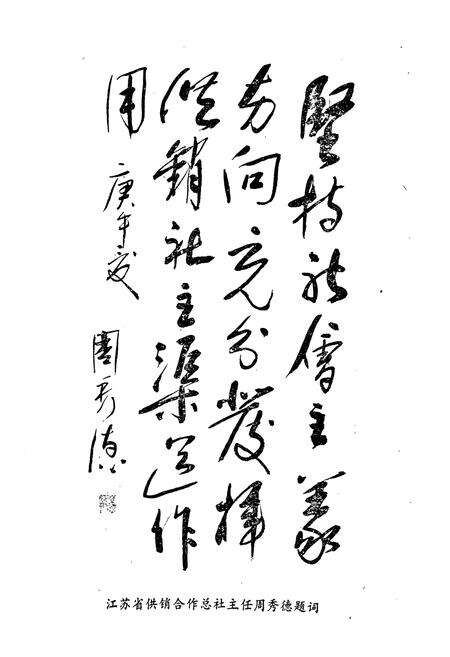 堅持社會主義
方向充分發揮
供銷社主渠道作
用
庚午夏
周秀德
江苏省供销合作总社主任周秀德题词